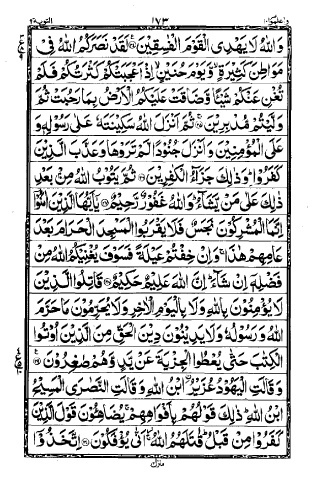 واعلموا ١٠ ١٧٣ التوبة ٩
وَاللّٰهُ لَا يَهْدِى الْقَوْمَ الْفٰسِقِيْنَ ﴿۲۴﴾ لَقَدْ نَصَرَكُمُ اللّٰهُ فِىْ
مَوَاطِنَ كَثِيْرَةٍ ۙ وَّيَوْمَ حُنَيْنٍ ۙ اِذْ اَعْجَبَتْكُمْ كَثْرَتُكُمْ فَلَمْ
تُغْنِ عَنْكُمْ شَيْـًٔا وَّضَاقَتْ عَلَيْكُمُ الْاَرْضُ بِمَا رَحُبَتْ ثُمَّ
وَلَّيْتُمْ مُّدْبِرِيْنَ ﴿۲۵﴾ ثُمَّ اَنْزَلَ اللّٰهُ سَكِيْنَتَهٗ عَلٰى رَسُوْلِهٖ وَ
عَلَى الْمُؤْمِنِيْنَ وَاَنْزَلَ جُنُوْدًا لَّمْ تَرَوْهَا وَعَذَّبَ الَّذِيْنَ
كَفَرُوْا ؕ وَذٰلِكَ جَزَآءُ الْكٰفِرِيْنَ ﴿۲۶﴾ ثُمَّ يَتُوْبُ اللّٰهُ مِنْۢ بَعْدِ
ذٰلِكَ عَلٰى مَنْ يَّشَآءُ ؕ وَاللّٰهُ غَفُوْرٌ رَّحِيْمٌ ﴿۲۷﴾ يٰۤاَيُّهَا الَّذِيْنَ اٰمَنُوْۤا
اِنَّمَا الْمُشْرِكُوْنَ نَجَسٌ فَلَا يَقْرَبُوا الْمَسْجِدَ الْحَرَامَ بَعْدَ
عَامِهِمْ هٰذَا ۚ وَاِنْ خِفْتُمْ عَيْلَةً فَسَوْفَ يُغْنِيْكُمُ اللّٰهُ مِنْ
فَضْلِهٖۤ اِنْ شَآءَ ؕ اِنَّ اللّٰهَ عَلِيْمٌ حَكِيْمٌ ﴿۲۸﴾ قَاتِلُوا الَّذِيْنَ
لَا يُؤْمِنُوْنَ بِاللّٰهِ وَلَا بِالْيَوْمِ الْاٰخِرِ وَلَا يُحَرِّمُوْنَ مَا حَرَّمَ
اللّٰهُ وَرَسُوْلُهٗ وَلَا يَدِيْنُوْنَ دِيْنَ الْحَقِّ مِنَ الَّذِيْنَ اُوْتُوا
الْكِتٰبَ حَتّٰى يُعْطُوا الْجِزْيَةَ عَنْ يَّدٍ وَّهُمْ صٰغِرُوْنَ ﴿۲۹﴾
وَقَالَتِ الْيَهُوْدُ عُزَيْرُ ۨابْنُ اللّٰهِ وَقَالَتِ النَّصٰرَى الْمَسِيْحُ
ابْنُ اللّٰهِ ؕ ذٰلِكَ قَوْلُهُمْ بِاَفْوَاهِهِمْ ۚ يُضَاهِـُٔوْنَ قَوْلَ الَّذِيْنَ
كَفَرُوْا مِنْ قَبْلُ ؕ قَاتَلَهُمُ اللّٰهُ ۚ اَنّٰى يُؤْفَكُوْنَ ﴿۳۰﴾ اِتَّخَذُوْۤا